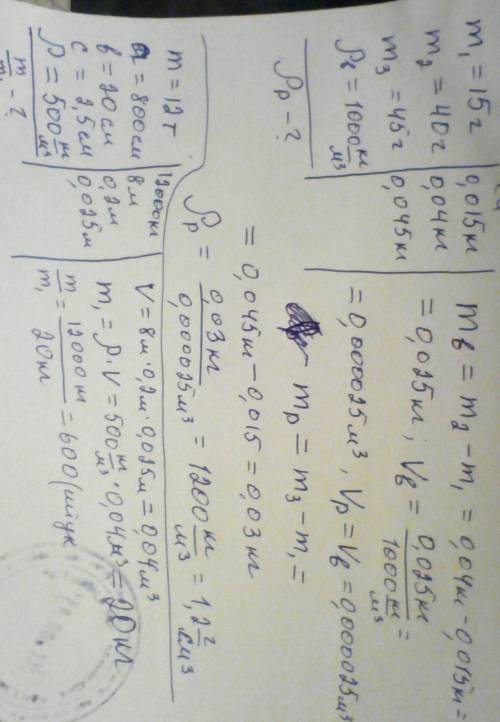 m₁ = 15г | 0,015кг
m₂ = 40г | 0,04кг
m₃ = 45г | 0,045кг
ρв = 1000 кг/м³
ρр - ?
mв = m₂ - m₁ = 0,04кг - 0,015кг =
= 0,025кг; Vв = 0,025кг / 1000 кг/м³ =
= 0,000025м³, Vр = Vв = 0,000025м³
mр = m₃ - m₁ =
= 0,045кг - 0,015 = 0,03кг
ρр = 0,03кг / 0,000025м³ = 1200 кг/м³ = 1,2 г/см³
m = 12т | 12000кг
a = 800см | 8м
b = 20см | 0,2м
c = 2,5см | 0,025м
ρ = 500 кг/м³
m/m₁ - ?
V = 8м · 0,2м · 0,025м = 0,04м³
m₁ = ρ · V = 500 кг/м³ · 0,04м³ = 20кг
m/m₁ = 12000кг / 20кг = 600 (штук